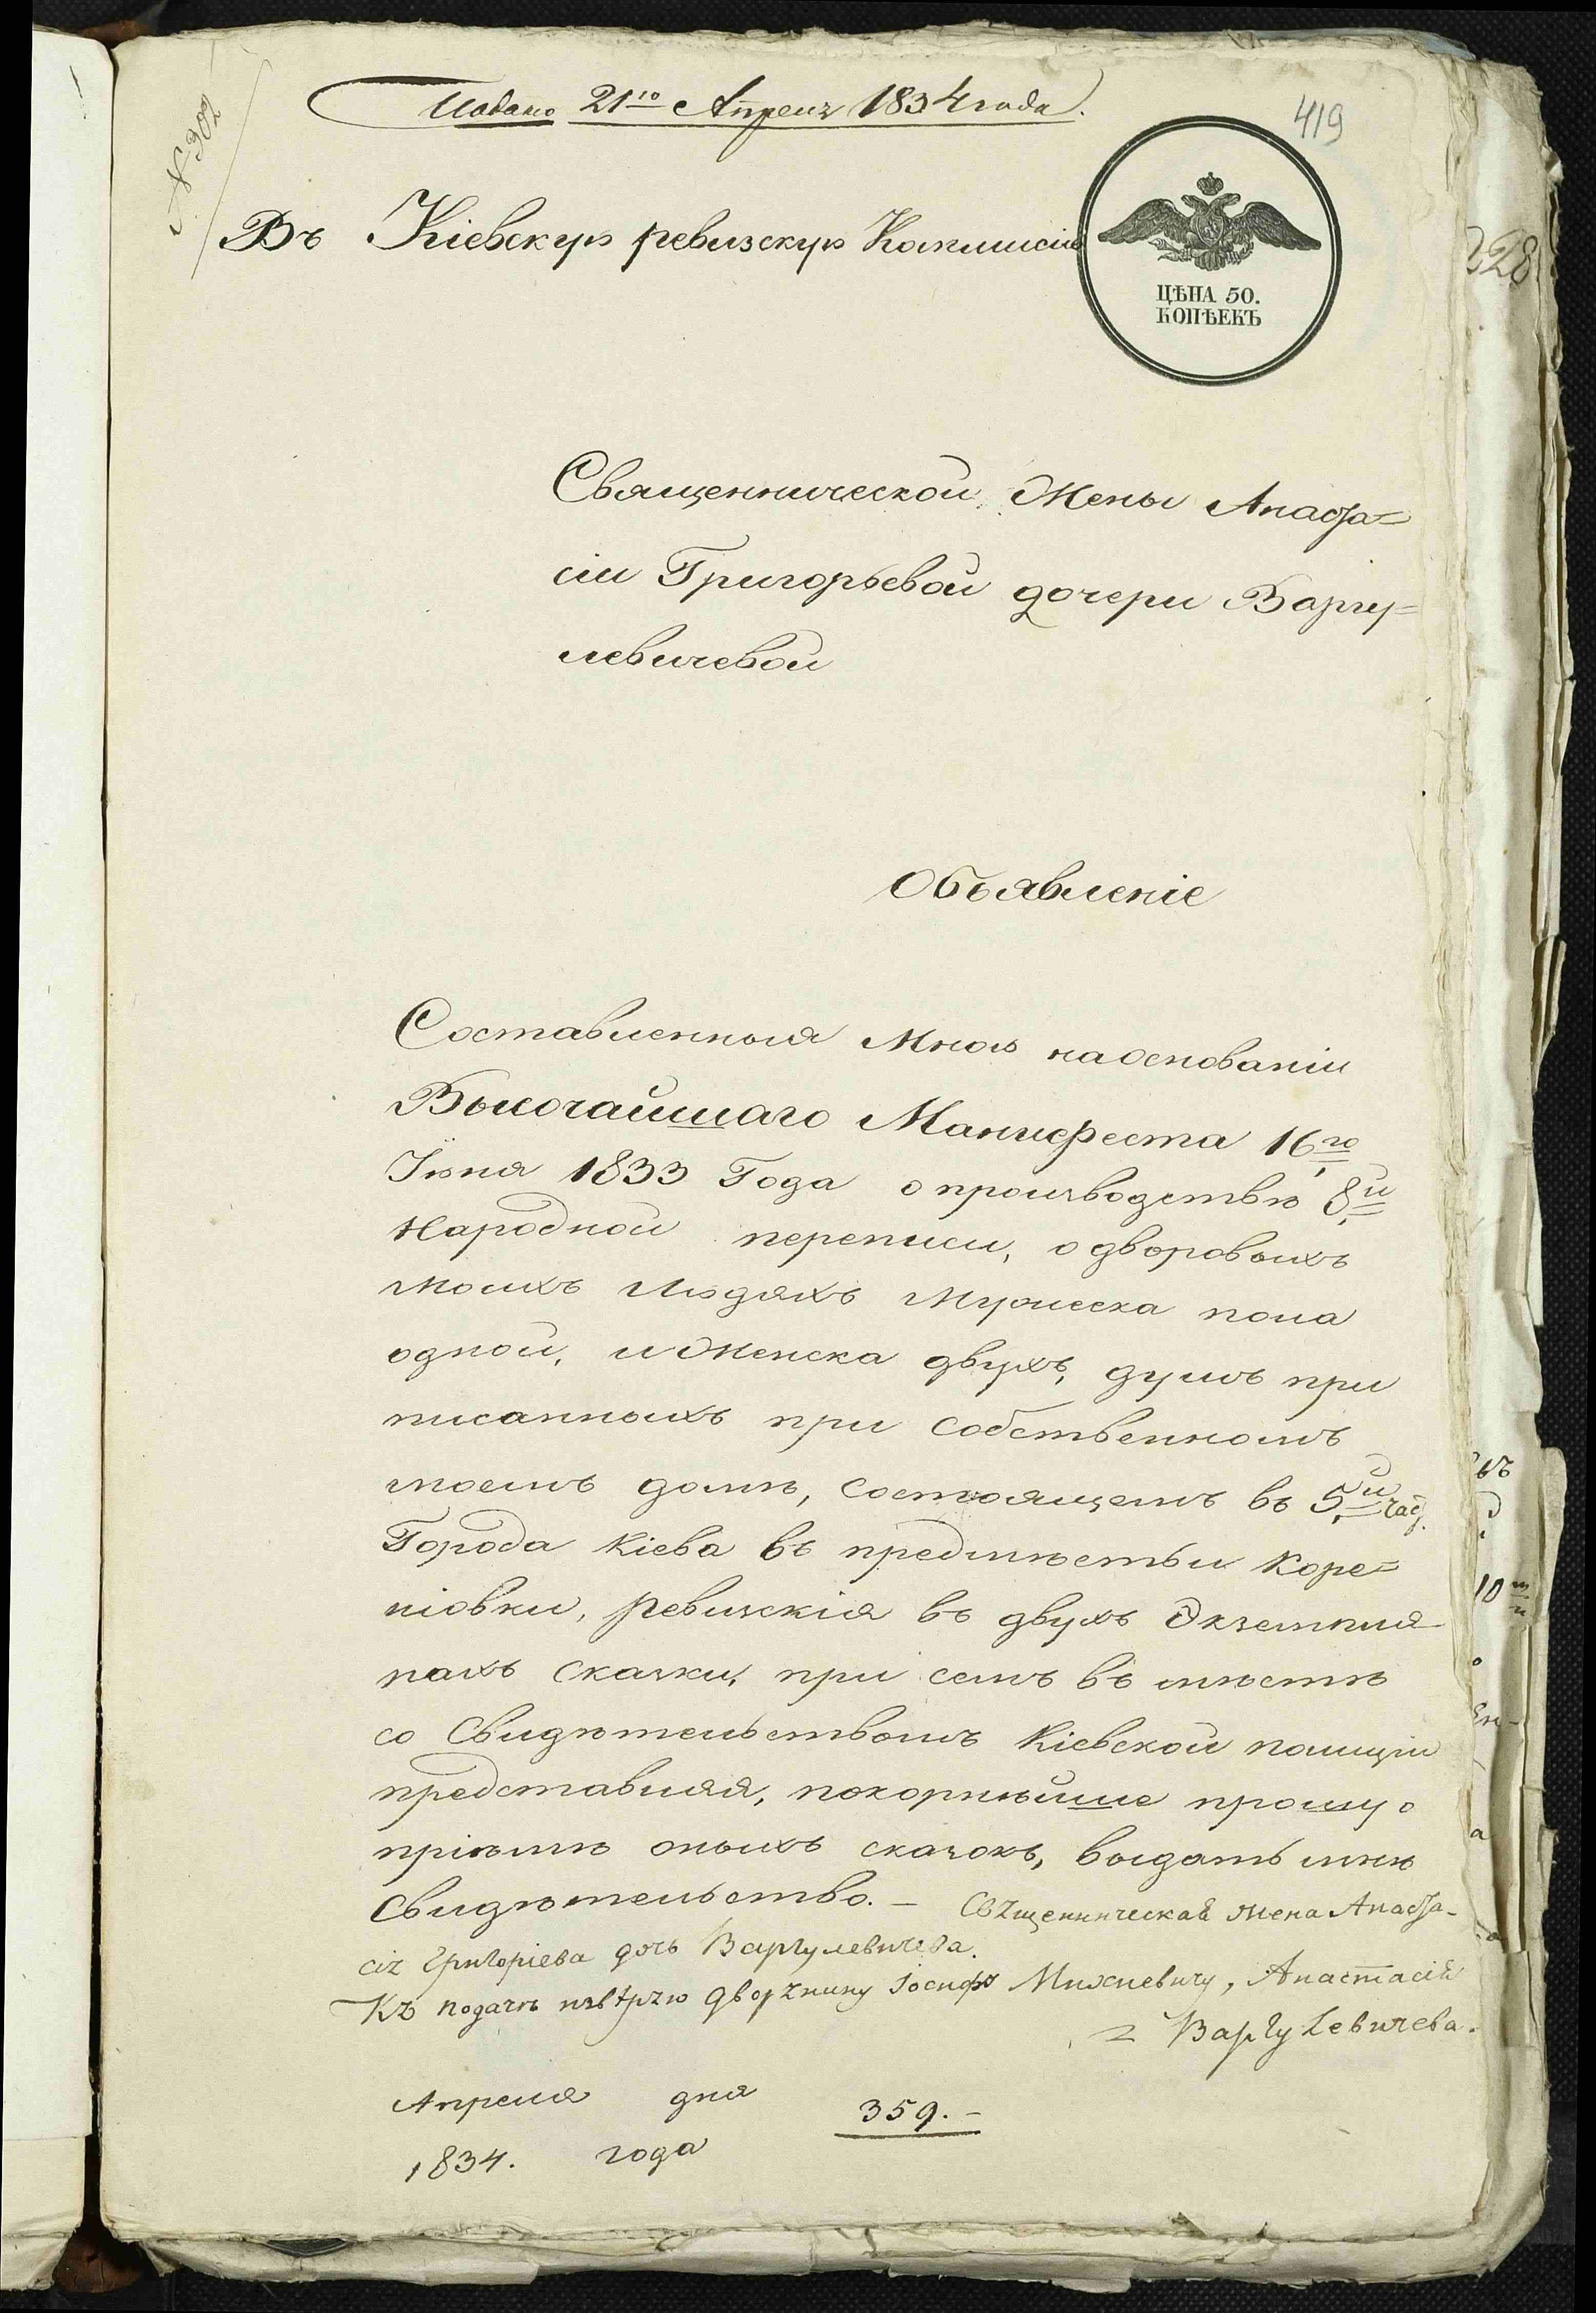 Подано 21го Апреля 1834 года.
419
№ 302
Въ Кіевскую ревизскую Коммисію
ЦѢНА 50.
КОПѢЕКЪ
228
Священнической Жены Анаста=
сіи Григорьевой дочери Варгу=
левичевой
Объявленіе
Составленныя Мною на основаніи
Высочайшаго Манифеста 16го
Іюня 1833 Года о производствѣ 8й
Народной переписи, о дворовыхъ
моихъ Людяхъ Мужеска пола
одной, и Женска двухъ, душъ при
писанныхъ при собственномъ
моемъ домѣ, состоящемъ въ 5й част.
Города Кіева въ предмѣстьи Коре=
ніовки, ревизскія въ двухъ Экземпля
рахъ сказки, при семъ въ мѣстѣ
со Свидѣтельствомъ Кіевской полиціи
представляя, покорнѣйше прошу о
пріѣмѣ оныхъ сказокъ, выдать мнѣ
Свидѣтельство. – Священническая жена Анаста-
сія Григоріева дочь Варгулевичева.
Къ подачѣ ввѣряю дворянину Іосифу Михневичу, Анастасія
Варгулевичева.
Апреля дня
359.-
1834. года